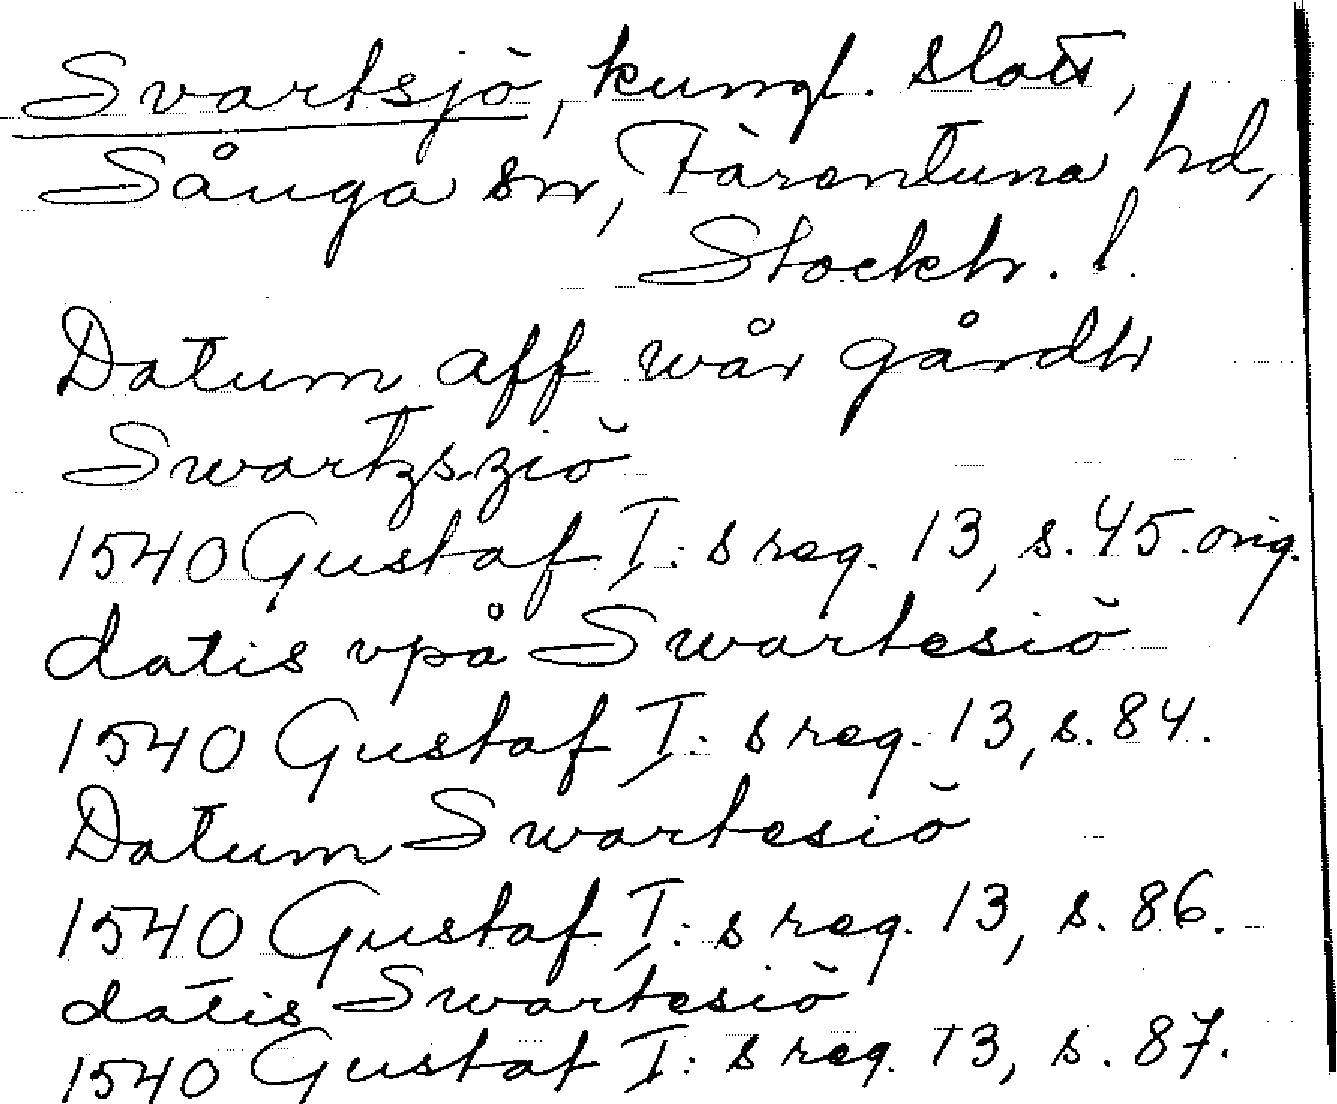 Svartsjö, kungl. slott,
Sånga sn, Färentuna hd,
Stockh. l.
Datum aff wår gårdh
Swartzsziö
1540 Gustaf I:s reg. 13, s. 45. orig.
datis vpå Swartesiö
1540 Gustaf I:s reg. 13, s. 84.
Datum Swartesiö
1540 Gustaf I:s reg. 13, s. 86.
datis Swartesiö
1540 Gustaf I:s reg. 13, s. 87.